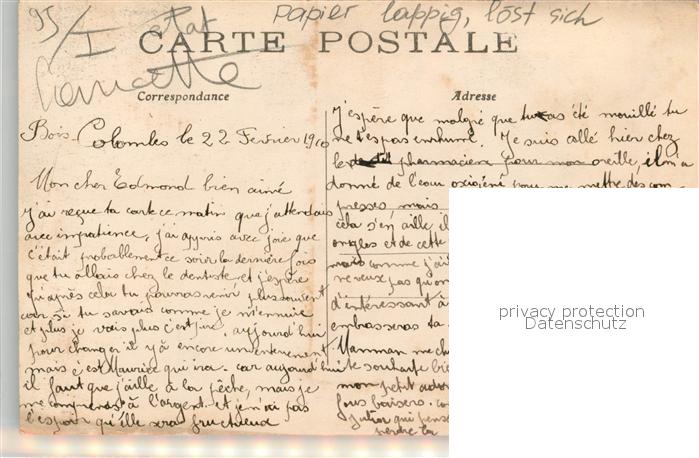 95/I
Etat
papier lappig, löst sich
CARTE POSTALE
Correspondance
Adresse
Bois-Colombes le 22 Février 1910
Mon cher Edmond bien aimé
J'ai reçue ta carte ce matin que j'attendais
avec impatience, j'ai appris avec joie que
c'était probablement ce soir la dernière fois
que tu allais chez le dentiste et j'espère
qu'après cela tu pourras venir plus souvent
car si tu savais comme je m'ennuie
et plus je vais plus c'est pire, aujourd'hui
pour changer il y à encore un enterrement
mais c'est Maurice qui ira. car aujourd'hui
il faut que j'aille à la pêche, mais je
me comprends à l'argent et je n'ai pas
l'espoir qu'ille sera fructueux
J'espère que malgré que tu as été mouillé tu
ne t'es pas enrhumé. Je suis allé hier chez
le pharmacien pour mon oreille, il m'a
donné de l'eau oxigéné pour me mettre des com-
presses, mais
cela s'en aille, il
ongles et de cette
mais comme j'ai
ne veux pas qu'on
d'intéressant à
embrasseras ta
Mamman me ch
te souhaite bie
mon petit ador
fous baisers. co
qui pense
perdre la
privacy protection
Datenschutz